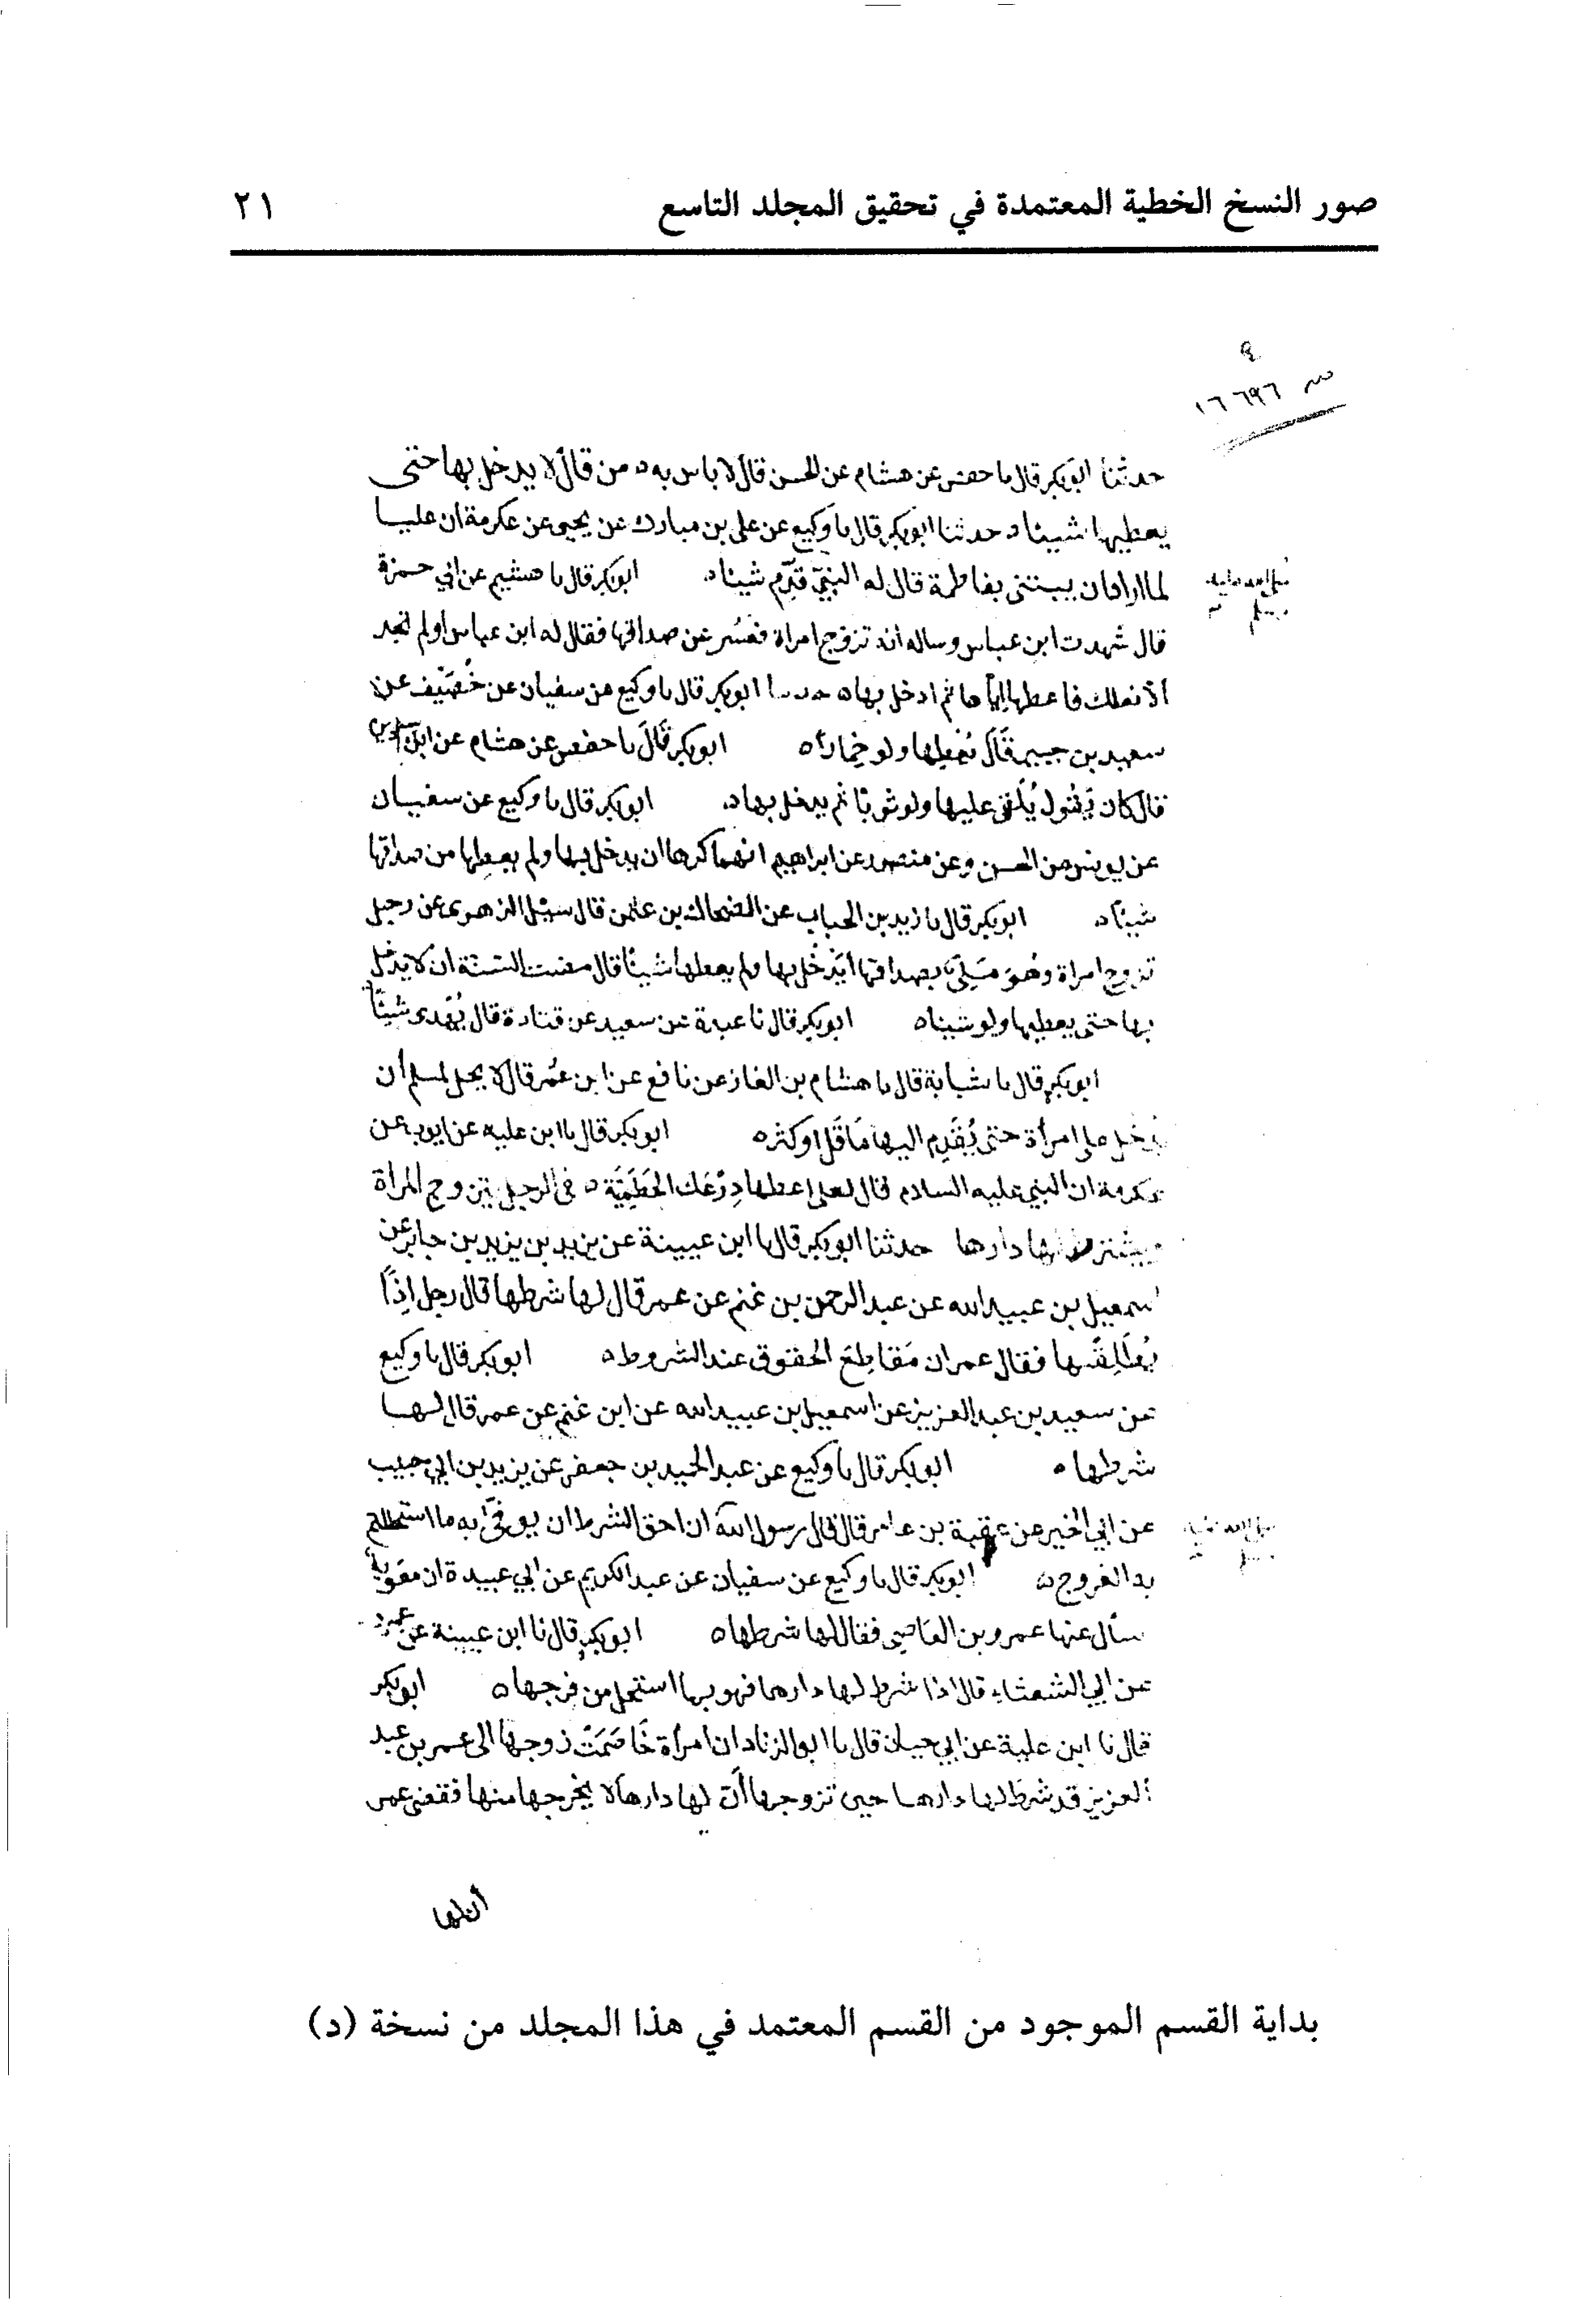 صور النسخ الخطية المعتمدة في تحقيق المجلد التاسع ٢١
٩
١٦٦٩٦
حدثنا ابو بكر قال نا حفص عن هشام عن الحسن قال لا باس به ه من قال لا يدخل بها حتى
يعطيها شيئا ه حدثنا ابو بكر قال نا وكيع عن علي بن مبارك عن يحيى عن عكرمة ان عليا
لما اراد ان يبتني بفاطمة قال له النبي قدّم شيئا ه ابو بكر قال نا هشيم عن ابي حمزة
صلى الله عليه
وسلم
قال شهدت ابن عباس وساله انه تزوج امراة فعسر عن صداقها فقال له ابن عباس ولم تجد
الا نعلك فاعطها اياها ثم ادخل بها ه حدثنا ابو بكر قال نا وكيع عن سفيان عن خُصَيْف عن
سعيد بن جبير قال يُعطيها ولو خمارًا ه ابو بكر قال نا حفص عن هشام عن ابن سيرين
قال كان يقول يُلْقي عليها ولو ثوبًا ثم يدخل بها ه ابو بكر قال نا وكيع عن سفيان
عن يونس عن الحسن وعن منصور عن ابراهيم انهما كرها ان يدخل بها ولم يعطها من صداقها
شيئا ه ابو بكر قال نا زيد بن الحباب عن الضحاك بن عثمن قال سيل الزهرى عن رجل
تزوج امراة وهو مَلِيّ بصداقها أيَدْخُل بها ولم يعطها شيئا قال مضت السنة ان لا يدخل
بها حتى يعطيها ولو شيئا ه ابو بكر قال نا عبدة عن سعيد عن قتادة قال يُهْدى شيئًا
ابو بكر قال نا شبابة قال نا هشام بن الغاز عن نافع عن ابن عُمر قال لا يحل لمسلم أن
يدخل على امرأة حتى يُقَدِم اليها ما قَل او كثر ه ابو بكر قال نا ابن عليه عن ايوب عن
عكرمة ان النبي عليه السلام قال لعلي اعطها دِرْعَك الحُطَمِيَّة ه في الرجل يتزوج المراة
ويشترط لها دارها حدثنا ابو بكر قال نا ابن عيينة عن يزيد بن يزيد بن جابر عن
اسمعيل بن عبيد الله عن عبد الرحمن بن غنم عن عمر قال لها شرطها قال رجل اذًا
يُطَلِقْنها فقال عمر ان مَقاطِعَ الحقوق عند الشروط ه ابو بكر قال نا وكيع
عن سعيد بن عبد العزيز عن اسمعيل بن عبيد الله عن ابن غنم عن عمر قال لها
شرطها ه ابو بكر قال نا وكيع عن عبد الحميد بن جعفر عن يزيد بن ابي حبيب
عن ابي الخير عن عقبة بن عامر قال قال رسول الله ان احق الشرط ان يوفّى به ما استحللتم
صلى الله عليه
وسلم
به الفروج ه ابو بكر قال نا وكيع عن سفيان عن عبد الكريم عن ابي عبيدة ان معوية
سأل عنها عمرو بن العاصي فقال لها شرطها ه ابو بكر قال نا ابن عيينة عن عمرو
عن ابي الشعثاء قال اذا شرط لها دارها فهو بما استحل من فرجها ه ابو بكر
قال نا ابن علية عن ابي حيان قال نا ابو الزناد ان امرأة خَاصَمَتْ زوجها الى عمر بن عبد
العزيز قد شرط لها دارها حين تزوجها أن لها دارها لا يخرجها منها فقضى عمر
أن لها
بداية القسم الموجود من القسم المعتمد في هذا المجلد من نسخة (د)